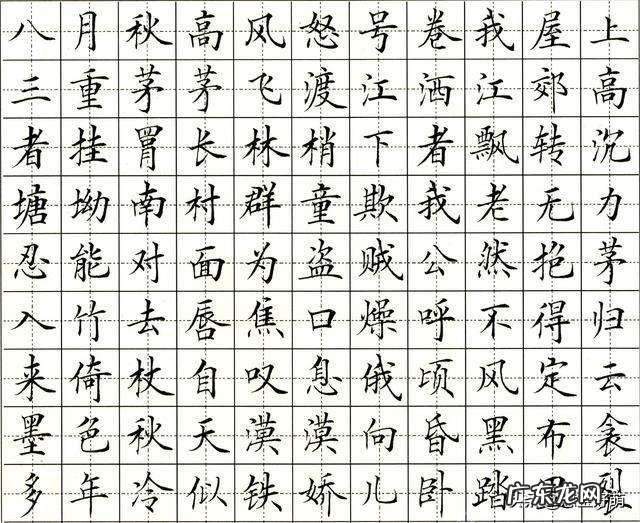 八月秋高风怒号卷我屋上
三重茅茅飞渡江洒江郊高
者挂罥长林梢下者飘转沉
塘坳南村群童欺我老无力
忍能对面为盗贼公然抱茅
入竹去唇焦口燥呼不得归
来倚杖自叹息俄顷风定云
墨色秋天漠漠向昏黑布衾
多年冷似铁娇儿卧踏裂
广东龙网